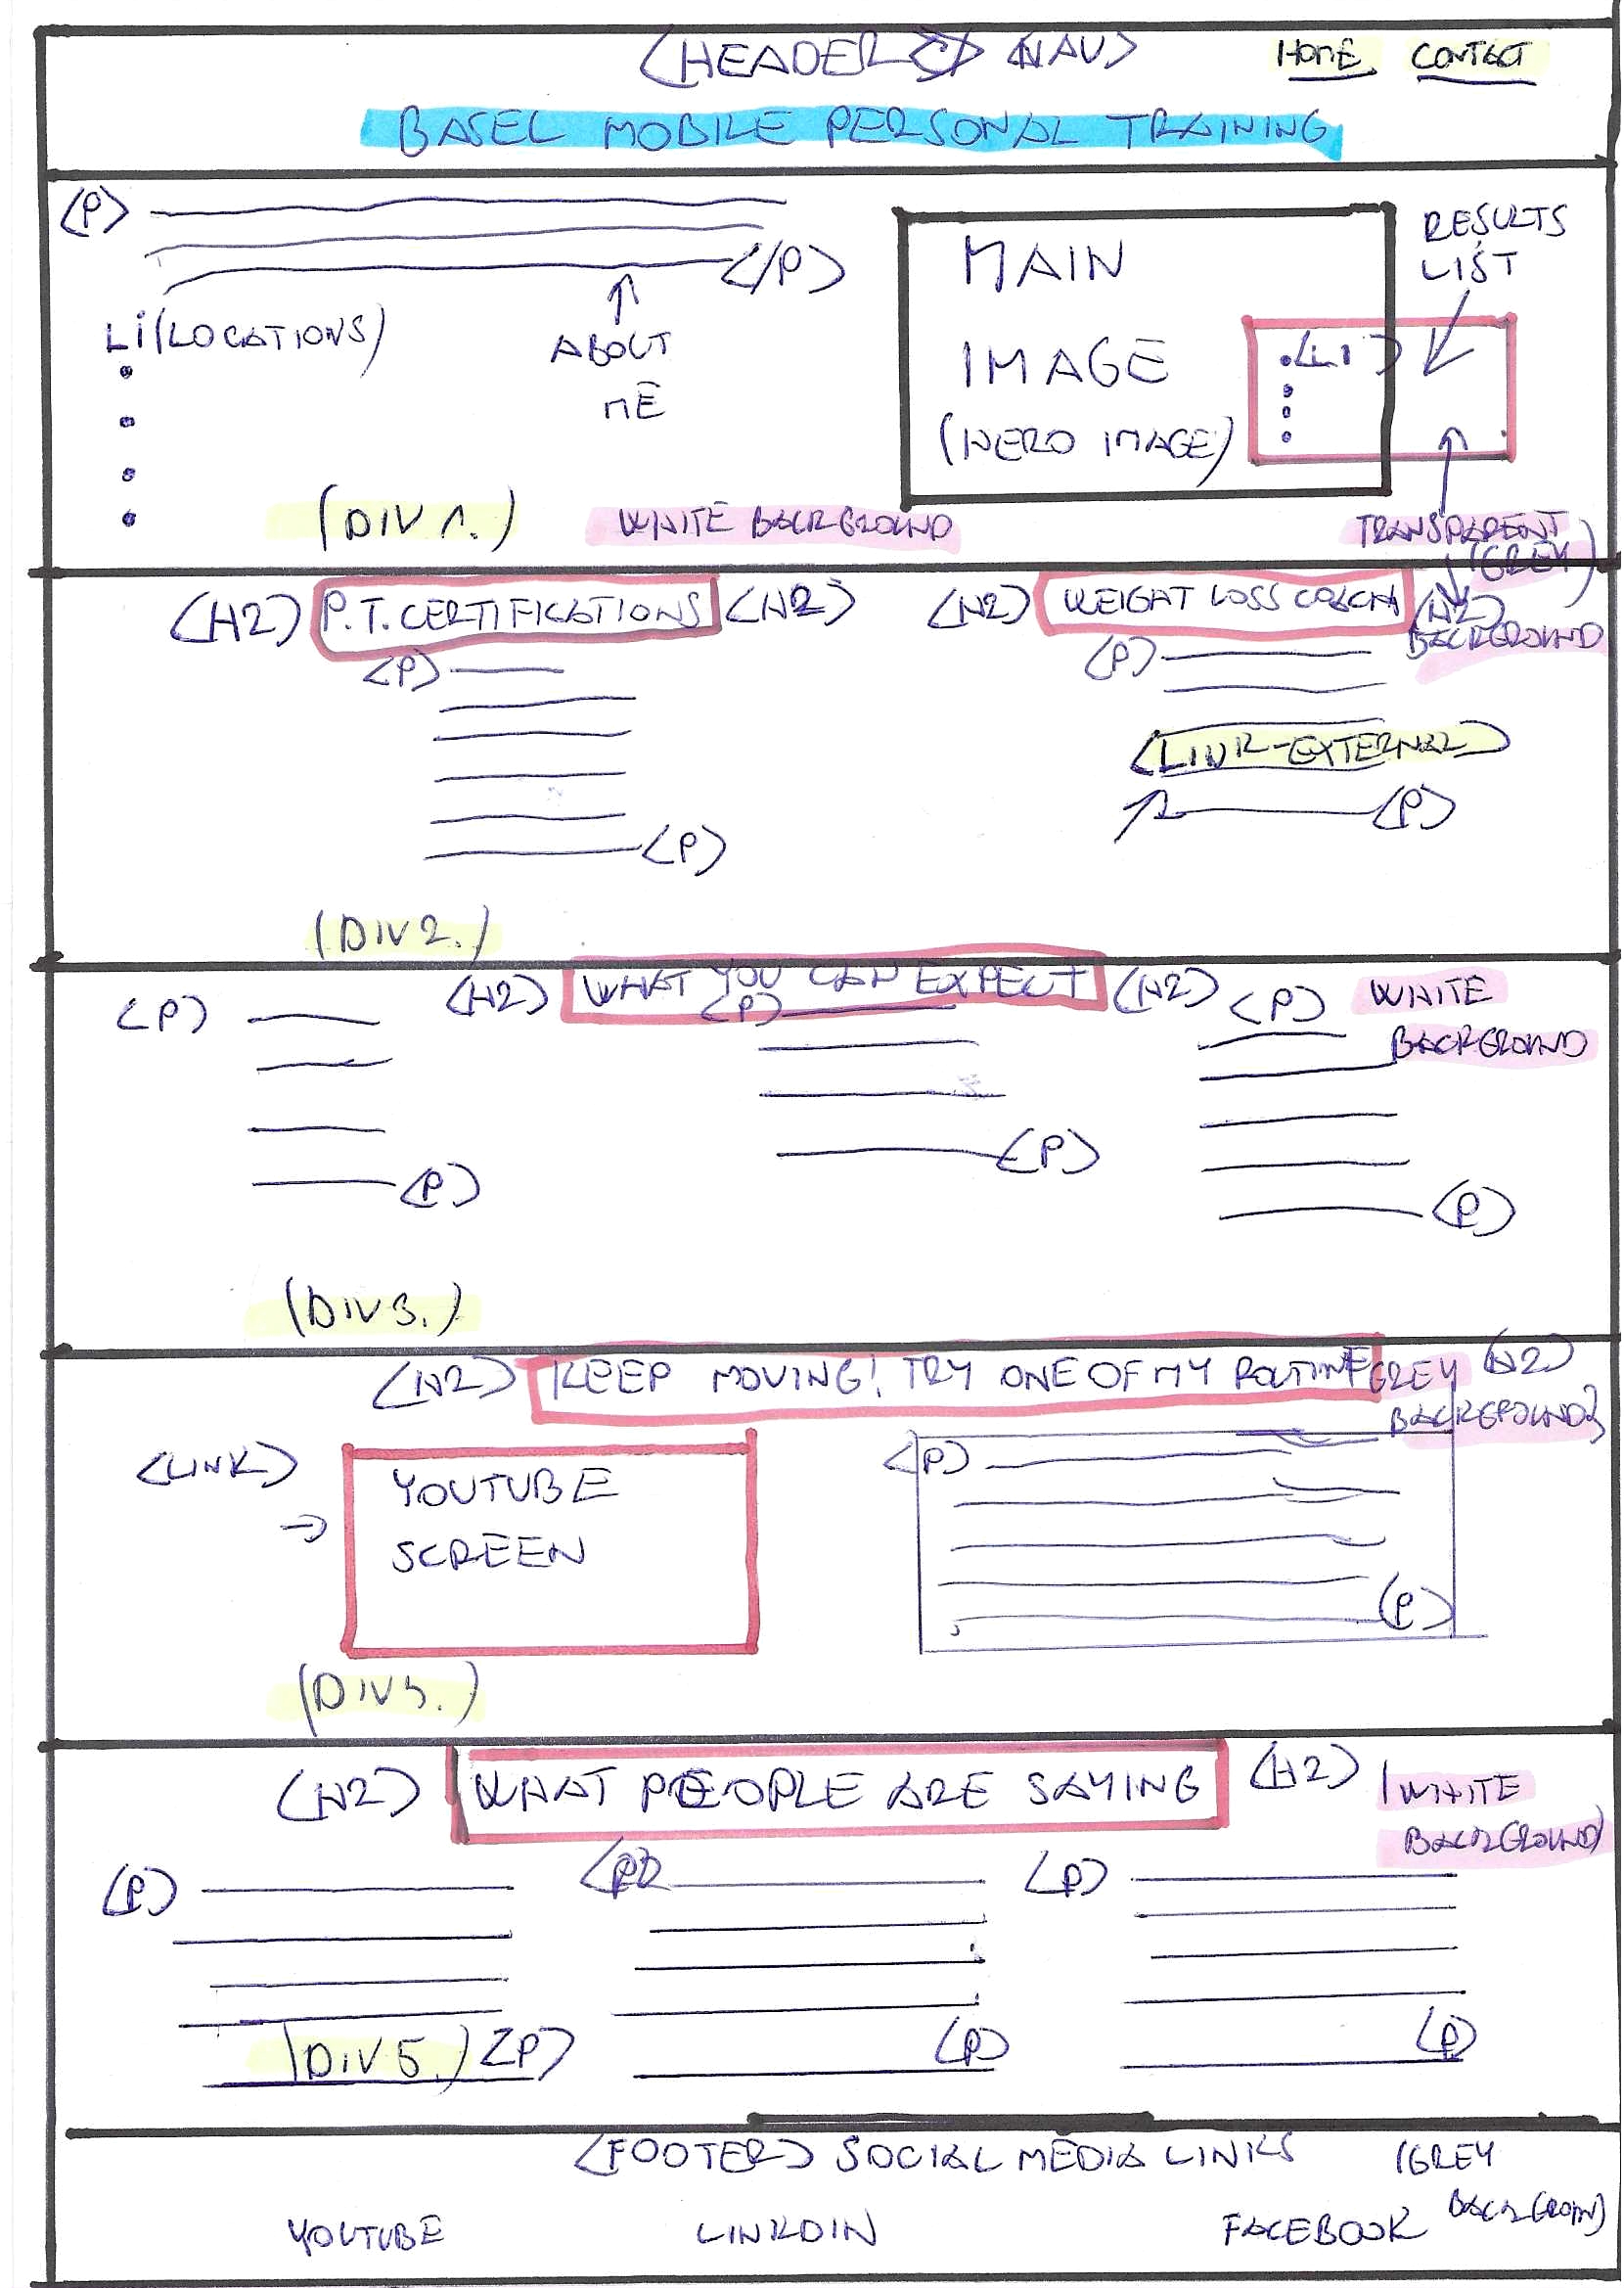 <HEADER> <NAV> HOME CONTACT
BASEL MOBILE PERSONAL TRAINING
<P>
</P>
RESULTS
LIST
MAIN
IMAGE
(HERO IMAGE)
Li(LOCATIONS)
ABOUT
ME
<LI>
(DIV 1.) WHITE BACKGROUND
TRANSPARENT
(GREY)
BACKGROUND
<H2) P.T. CERTIFICATIONS <H2> <H2) WEIGHT LOSS COACH (H2)
<P> <P>
<LINK-EXTERNAL>
<P>
<P>
(DIV 2.)
<H2) WHAT YOU CAN EXPECT <H2>
<P> <P> <P> WHITE
BACKGROUND
<P> <P> <P>
(DIV 3.)
<H2> KEEP MOVING! TRY ONE OF MY ROUTINE GREY <H2>
BACKGROUND
<LINK> YOUTUBE <P>
SCREEN
(P)
(DIV 4.)
(H2) WHAT PEOPLE ARE SAYING (H2) (WHITE
BACKGROUND)
<P> <P> <P>
(DIV 5.) <P> <P> <P>
<FOOTER> SOCIAL MEDIA LINKS (GREY
BACKGROUN)
YOUTUBE LINKDIN FACEBOOK